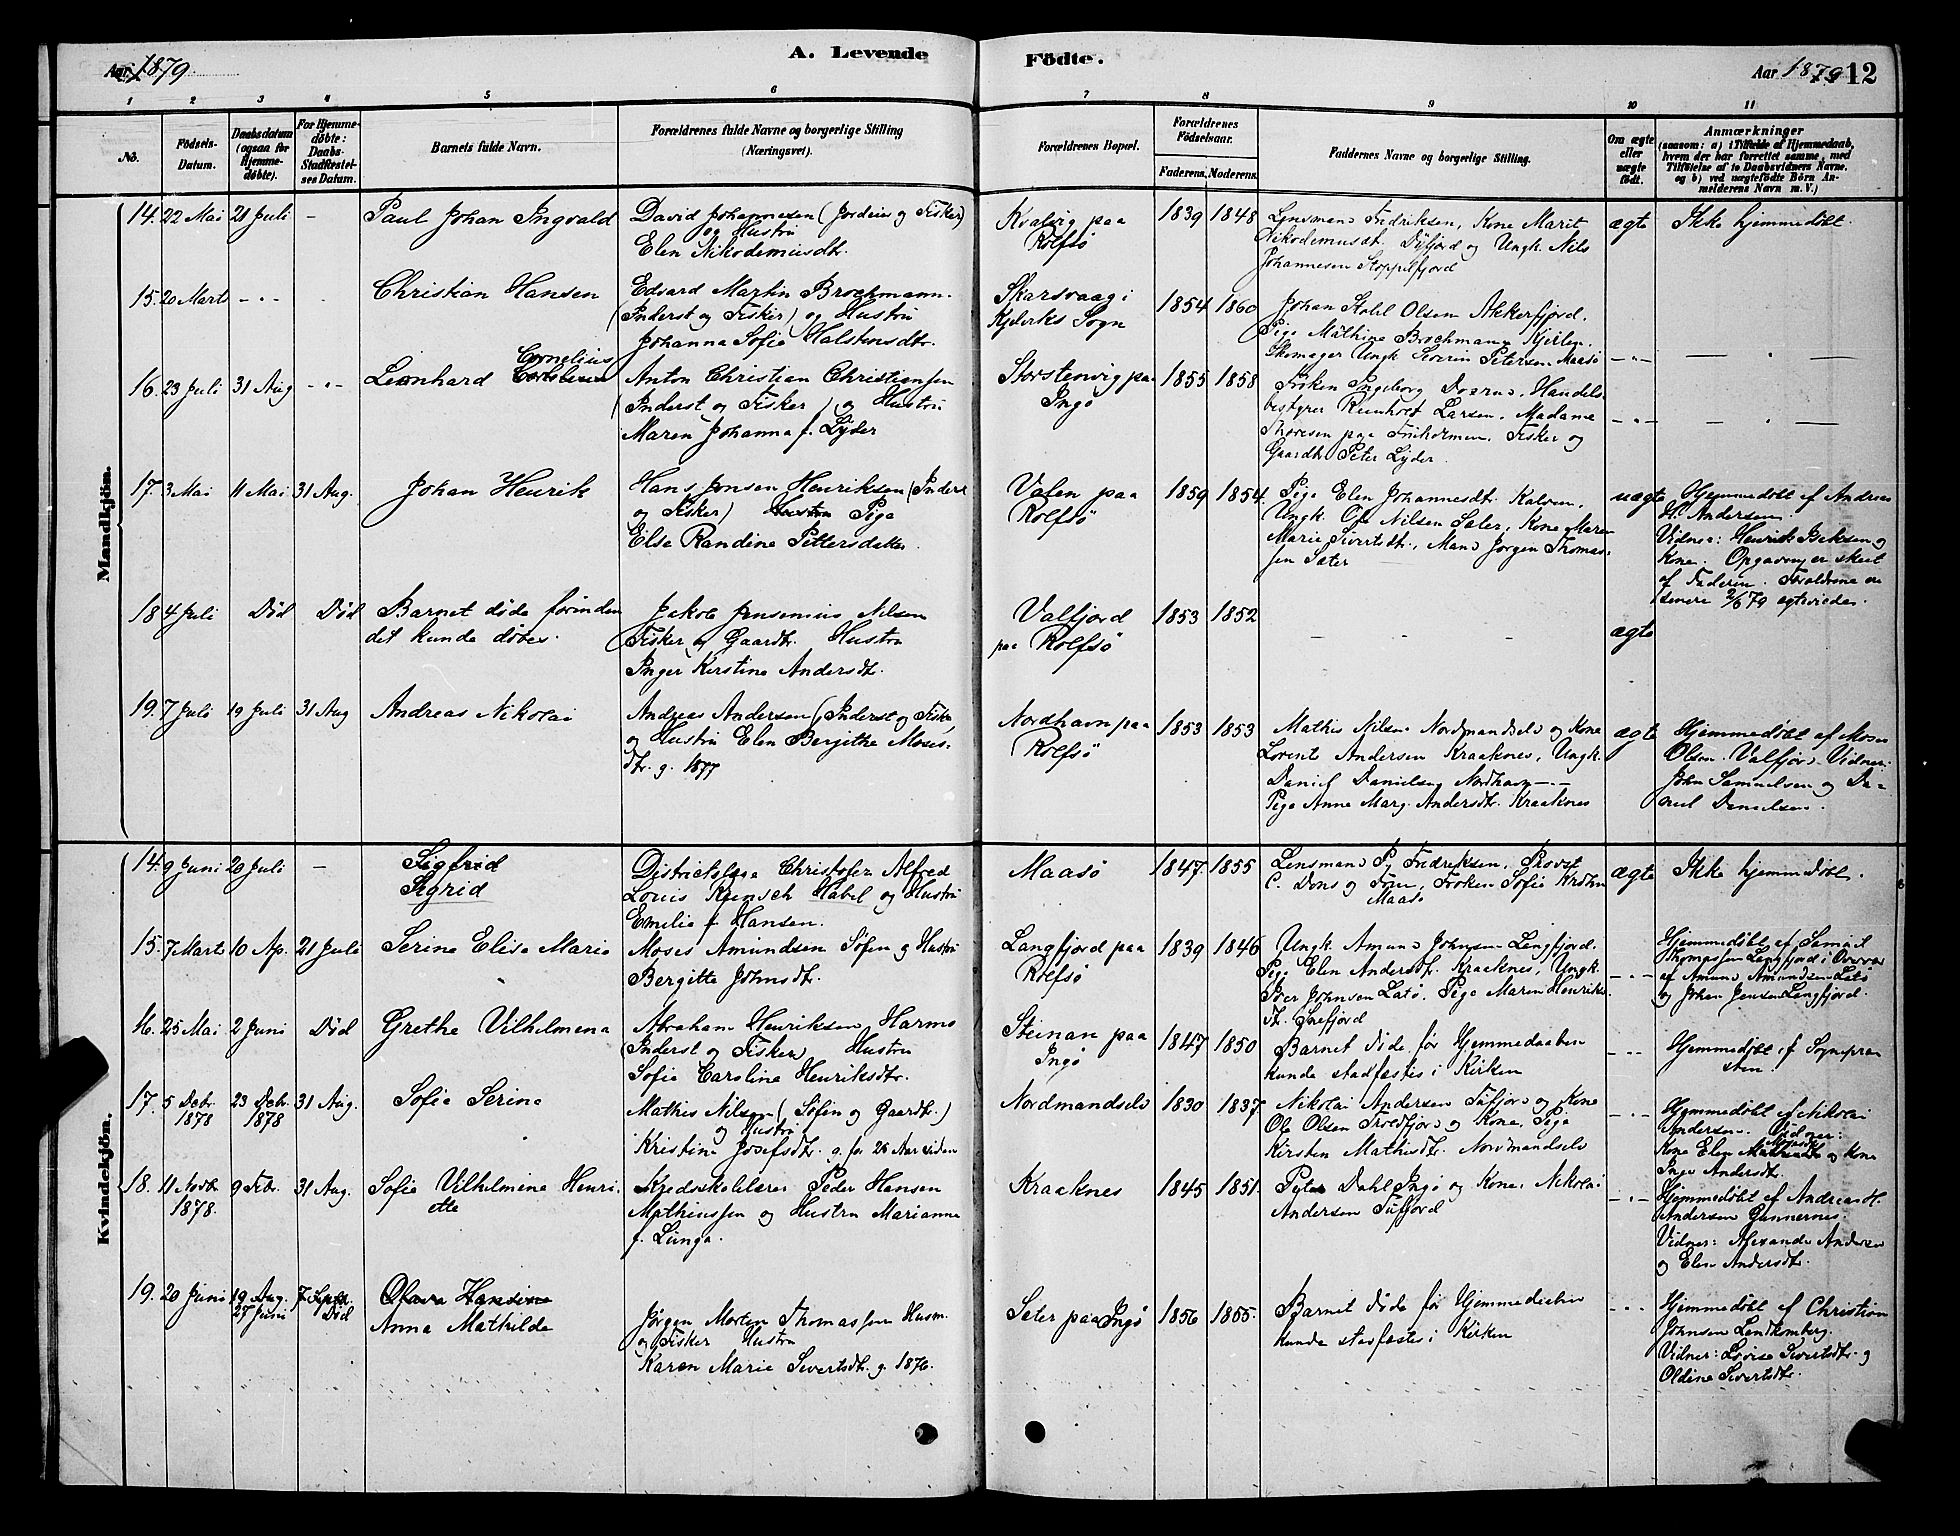 Aar 1879
A. Levende
Födte.
Aar 1879
12
1 2 3 4 5 6 7 8 9 10 11
No.
Födsels-
Datum.
Daabsdatum
(ogsaa for
Hjemme-
döbte).
For Hjemme-
döbte:
Daabs-
Stadfæstel-
ses Datum.
Barnets fulde Navn.
Forældrenes fulde Navne og borgerlige Stilling
(Næringsvei).
Forældrenes Bopæl.
Forældrenes
Födselsaar.
Faderens. Moderens.
Faddernes Navne og borgerlige Stilling.
Om ægte
eller
uægte
födt.
Anmærkninger
(saasom: a) i Tilfælde af Hjemmedaab,
hvem der har forrettet samme, med
Tilföielse af to Daabsvidners Navne.
og b) ved uægtefödte Börn An-
melderens Navn m. V.)
Mandkjön.
14. 22 Mai 21 Juli - Paul Johan Ingvald
David Johannesen (Jordeier og Fisker)
og Hustru
Elen Nikodemusdtr.
Kvalvig paa
Rolfsö
1839 1848
Lensmand Fredriksen, Kone Marit
Nikodemusdt. Dyfjord og Ungk. Nils
Johannesen Stoppelfjord
ægte
Ikke hjemmedöbt.
15. 20 Marts - " - Christian Hansen
Edvard Martin Brochmann
(Inderst og Fisker) og Hustru
Johanna Sofie Halstensdtr.
Skarsvaag i
Kjelviks Sogn
1854 1860
Johan Stohl Olsen Akkerfjord.
Pige Mathine Brochmann Kjeilen.
Skomager Ungk Severin Petersen Maasö
- " -
16. 23 Juli 31 Aug - " - Leonhard Cornelius
Anton Christian Christiansen
(Inderst og Fisker) og Hustru
Maren Johanna f. Lyder
Storstenvig paa
Ingö
1855 1858
Fröken Ingeborg Daerns, Handels-
bestyrer Reinholt Larsen, Madame
Thoresen paa Fruholmen. Fisker og
Gaardb. Peter Lyder.
- " -
17. 3 Mai 11 Mai 31 Aug. Johan Henrik
Hans Jensen Henriksen (Inderst
og Fisker) Hustru Pige
Else Randine Pettersdatter.
Valen paa
Rolfsö
1859 1854
Pige Elen Johannesdt. Kalven,
Ungk. Ole Nilsen Sater, Kone Maren
Marie Sivertsdt., Mand Jörgen Thomas-
sen Sater
uægte
Hjemmedöbt af Andreas
H. Andersen.
Vidner: Henrik Isaksen og
Kone. Opgaven er skeet
af Faderen. Forældrene er
senere 2/6 79 egteviede.
18 4 Juli Död Död Barnet döde forinden
det kunde döbes.
Jakob Jensenius Nilsen
Fisker og Gaardbr. Hustru
Inger Kirstine Andersdtr.
Valfjord
paa Rolfsö
1853 1852
- - -
ægte
19. 7 Juli 19 Juli 31 Aug Andreas Nikolai
Andreas Andersen (Inderst og Fisker
og Hustru Elen Bergithe Moses-
dtr. g. 1877
Nordhavn paa
Rolfsö
1853 1853
Mathis Nilsen Nordmandseld og Kone
Lorentse Andersen Kraaknes, Ungk.
Daniel Danielsen Nordhavn --
Pige Anne Marg. Andersdtr. Kraaknes
ægte
Hjemmedöbt af Moses
Olsen Valfjord. Vidner:
John Samuelsen og Da-
niel Danielsen.
Kvindekjön.
14. 9 Juni 20 Juli - Sigfrid
Sigrid
Districtslæge Christofer Alfred
Louis Habel og Hustru
Emilie f. Hansen.
Maasö
1847. 1855
Lensmand P. Fredriksen, Provst
C. Dons og Frue, Fröken Sofie Krohn
Maasö
ægte
Ikke hjemmedöbt.
15. 7 Marts 10 Ap. 21 Juli Serine Elise Marie
Moses Amundsen Söfin og Hustru
Bergitte Johnsdt.
Langfjord paa
Rolfsö
1839 1846
Ungk. Amund Johnsen Langfjord.
Pige Elen Andersdt. Kraaknes, Ungk.
Peer Johnsen Latö. Pige Maren Henriks-
dt. Snefjord
- " -
Hjemmedöbt af Samuel
Thomassen Langfjord i Overvær
af Amund Amundsen Latö
og Johan Jensen Langfjord.
16. 25 Mai 2 Juni Död Grethe Vilhelmina
Abraham Henriksen Harmo
(Inderst og Fisker) Hustru
Sofie Caroline Henriksdtr.
Steinan paa
Ingö
1847 1850
Barnet döde för Hjemmedaaben
kunde stadfæstes i Kirken
- " -
Hjemmedöbt af Sognepræ
sten.
17. 5 Debr. 1878 23 Debr. 1878 31 Aug. Sofie Serine
Mathis Nilsen (Söfin og Gaardb.)
og Hustru
Kristine Josefsdtr. g. for 26 Aar siden
Nordmandseld
1830 1837
Nikolai Andersen Tufjord og Kone
Ole Olsen Troldfjord og Kone. Pige
Kirsten Mathisdtr. Nordmandseld
- " -
Hjemmedöbt af Nikolai
Andersen. Vidner:
Kone Elen og Kone
Inger Andersdtr.
18. 11 Novbr. 1878. 9 Febr. 31 Aug. Sofie Vilhelmine Henri-
ette
Kredsskolelærer Peder Hansen
Mathiessen og Hustru Marianne
f. Lunga.
Kraaknes
1845 1851.
Peter Dahl Ingö og Kone, Nikolai
Andersen Tufjord
- " -
Hjemmedöbt af Andreas H.
Andersen Gunnernes.
Vidner: Alexander Andersen
og Elen Andersdtr.
19. 20 Juni 19 Aug. 7 Septb.
27 Juni Död
Olava Hansine
Anna Mathilde
Jörgen Morten Thomassen Husm.
og Fisker Hustru
Karen Marie Sivertsdtr. g. 1876.
Sater paa Ingö
1856 1855.
Barnet döde för Hjemmedaaben
kunde stadfæstes i Kirken
- " -
Hjemmedöbt af Christian
Johnsen
Vidner: Lovise Sivertsdtr. og
Oldine Sivertsdtr.